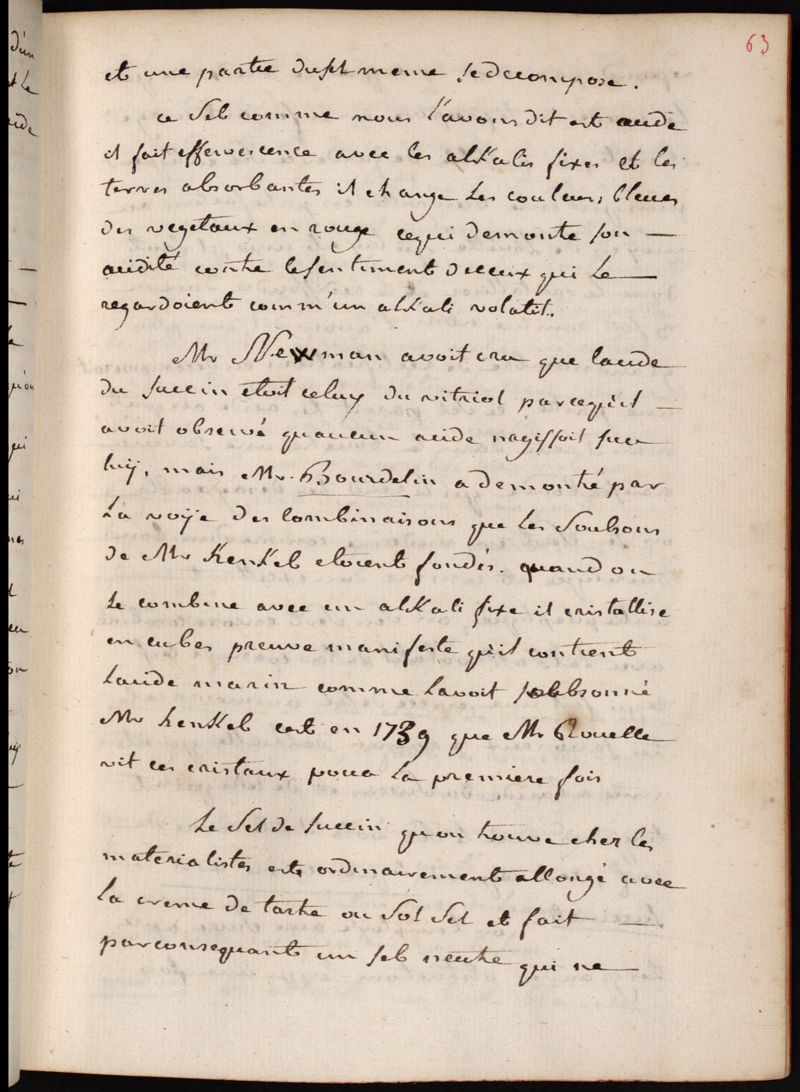 63
et une partie du sel meme se decompose.
ce Sel comme nous l'avons dit est acide
il fait effervescence avec les alkalis fixes et les
terres absorbantes il change les couleurs bleues
des vegetaux en rouge ce qui demonte son —
acidité contre le sentiment de ceux qui le —
regardoient comm'un alkali volatil.
Mr Newman avoit cru que lacide
du succin etoit celuy du vitriol parcequ'il —
avoit observé quaucun acide nagissoit sur
luÿ, mais Mr. Bourdelin a demontré par
La voÿe des Combinaisons que les Soubsons
de Mr Kenkel etoient fondés. quand on
le combine avec un alkali fixe il cristallise
en cubes preuve manifeste qu'il contient
lacide marin comme lavoit soubsonné
Mr Kenkel cest en 1739 que Mr Rouelle
vit ces cristaux pour la premiere fois
Le Sel de succin qu'on trouve chez les
materialistes est ordinairement allongé avec
la creme de tartre ou Sel et fait —
parconsequant un sel neutre qui ne —